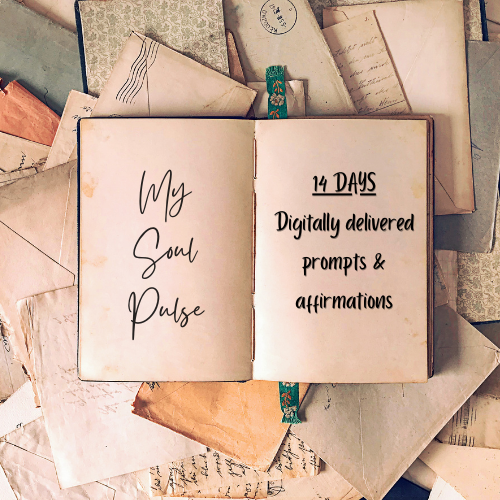 My
Soul
Pulse
14 DAYS
Digitally delivered
prompts &
affirmations